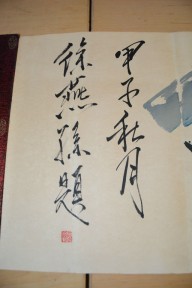 甲子秋月
徐燕孫題